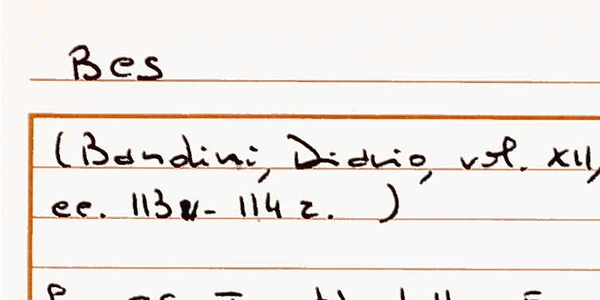 Bes
(Bandini, Diario, vol. XII,
cc. 113v - 114 r. )